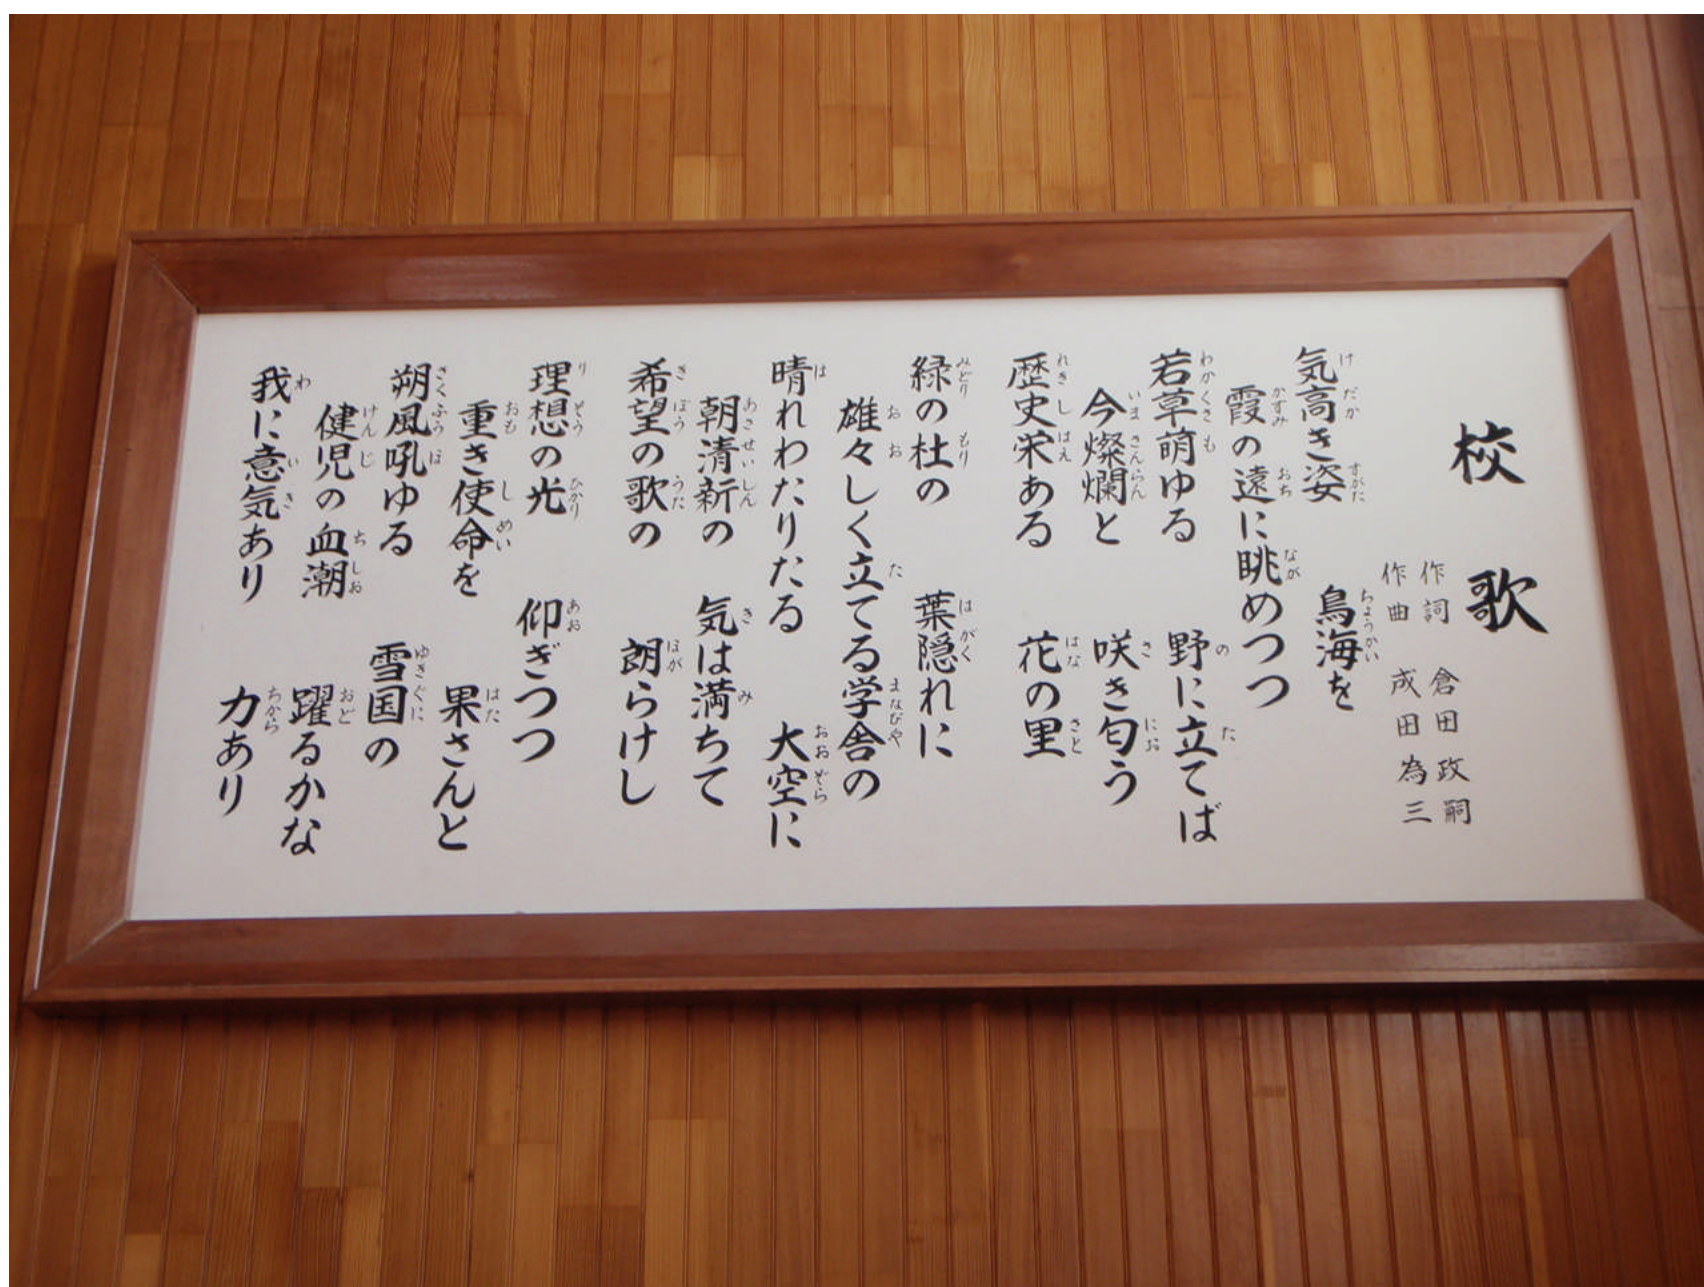 校歌
作詞 倉田政嗣
作曲 成田為三
気高き姿 鳥海を
霞の遠に眺めつつ
若草萌ゆる 野に立てば
今燦爛と 咲き匂う
歴史栄ある 花の里
緑の杜の 葉隠れに
雄々しく立てる学舎の
晴れわたりたる 大空に
朝清新の 気は満ちて
希望の歌の 朗らけし
理想の光 仰ぎつつ
重き使命を 果さんと
朔風吼ゆる 雪国の
健児の血潮 躍るかな
我に意気あり 力あり